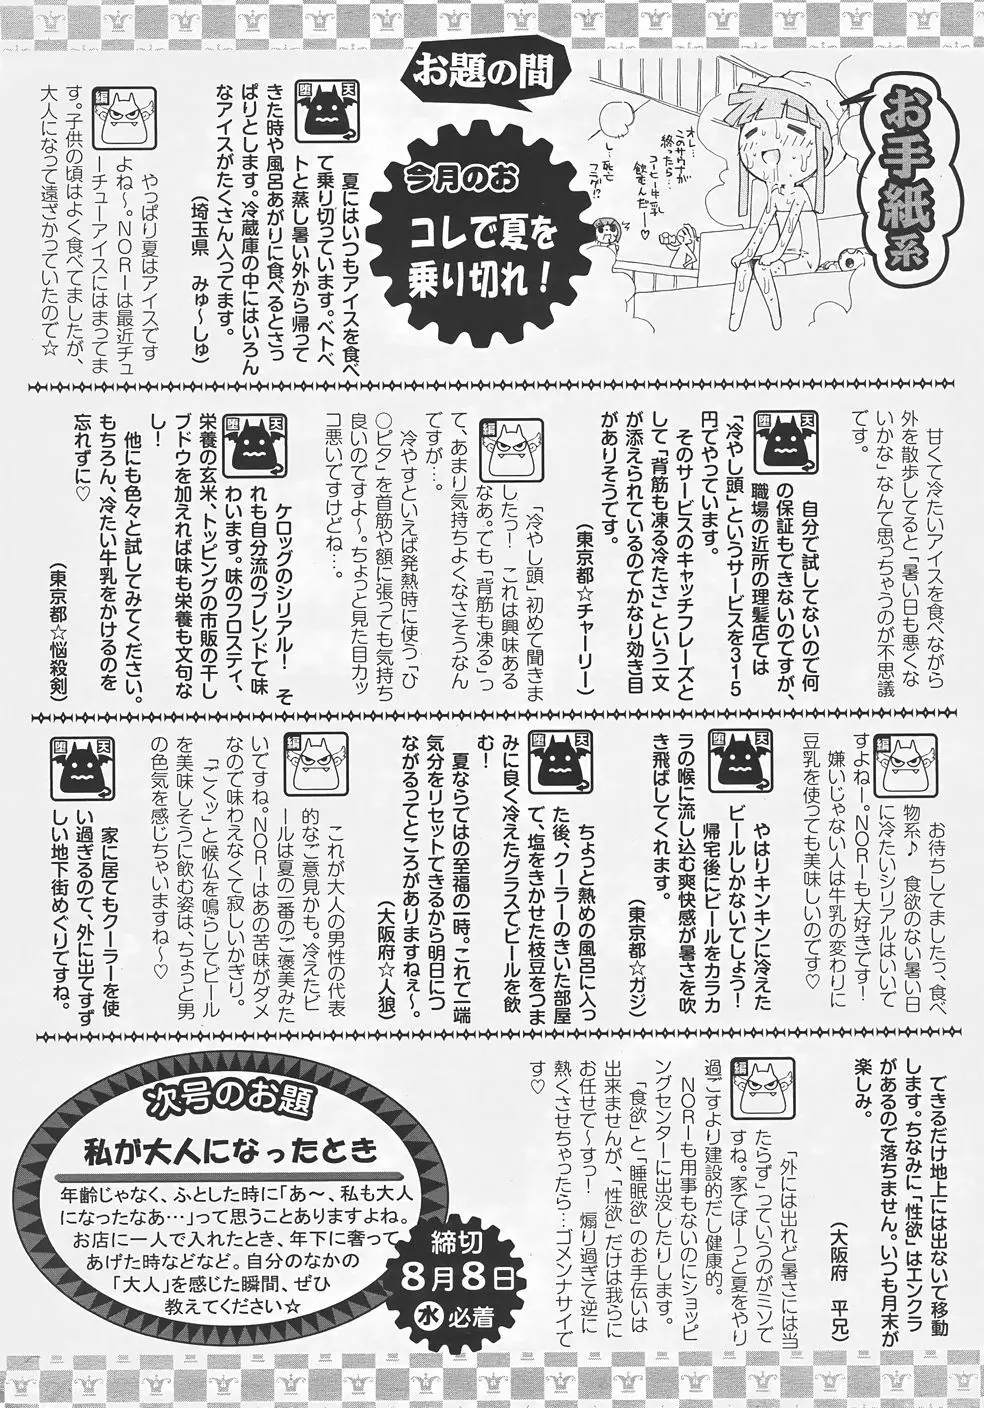 お手紙系
オレ…
このサウナが
終わったら…
コーヒー牛乳
飲むんだー♡
し…死亡
フラグ!?
お題の間
今月のお
コレで夏を
乗り切れ！
天
堕
夏にはいつもアイスを食べ
て乗り切っています。ベトベ
トと蒸し暑い外から帰って
きた時や風呂あがりに食べるとさっ
ぱりとします。冷蔵庫の中にはいろん
なアイスがたくさん入ってます。
（埼玉県　みゅ～しゅ）
編
やっぱり夏はアイスです
よね～。ＮＯＲＩは最近チュ
ーチューアイスにはまってま
す。子供の頃はよく食べてましたが、
大人になって遠ざかっていたので☆
甘くて冷たいアイスを食べながら
外を散歩してると「暑い日も悪くな
いかな」なんて思っちゃうのが不思議
です。
天
堕
自分で試してないので何
の保証もできないのですが、
職場の近所の理髪店では
「冷やし頭」というサービスを３１５
円でやっています。
そのサービスのキャッチフレーズと
して「背筋も凍る冷たさ」という一文
が添えられているのでかなり効き目
がありそうです。
（東京都☆チャーリー）
編
「冷やし頭」初めて聞きま
したっ！　これは興味ある
なあ。でも「背筋も凍る」っ
て、あまり気持ちよくなさそうなん
ですが…。
冷やすといえば発熱時に使う「ひ
○ピタ」を首筋や額に張っても気持ち
良いのですよ～。ちょっと見た目カッ
コ悪いですけどね…。
天
堕
ケロッグのシリアル！　そ
れも自分流のブレンドで味
わいます。味のフロスティ、
栄養の玄米、トッピングの市販の干し
ブドウを加えれば味も栄養も文句な
し！
他にも色々と試してみてください。
もちろん、冷たい牛乳をかけるのを
忘れずに♡
（東京都☆悩殺剣）
編
お待ちしてましたっ、食べ
物系♪　食欲のない暑い日
に冷たいシリアルはいいで
すよねー。ＮＯＲＩも大好きです！
嫌いじゃない人は牛乳の変わりに
豆乳を使っても美味しいのです♡
天
堕
やはりキンキンに冷えた
ビールしかないでしょう！
帰宅後にビールをカラカ
ラの喉に流し込む爽快感が暑さを吹
き飛ばしてくれます。
（東京都☆ガジ）
天
堕
ちょっと熱めの風呂に入っ
た後、クーラーのきいた部屋
で、塩をきかせた枝豆をつま
みに良く冷えたグラスでビールを飲
む！
夏ならではの至福の一時。これで一端
気分をリセットできるから明日につ
ながるってところがありますねぇ～。
（大阪府☆人狼）
編
これが大人の男性の代表
的なご意見かも。冷えたビ
ールは夏の一番のご褒美みた
いですね。ＮＯＲＩはあの苦味がダメ
なので味わえなくて寂しいかぎり。
「ごくッ」と喉仏を鳴らしてビール
を美味しそうに飲む姿は、ちょっと男
の色気を感じちゃいますね～♡
天
堕
家に居てもクーラーを使
い過ぎるので、外に出てすず
しい地下街めぐりですね。
できるだけ地上には出ないで移動
します。ちなみに「性欲」はエンクラ
があるので落ちません。いつも月末が
楽しみ。
（大阪府　平兄）
編
「外には出れど暑さには当
たらず」っていうのがミソで
すね。家でぼーっと夏をやり
過ごすより建設的だし健康的。
ＮＯＲＩも用事もないのにショッピ
ングセンターに出没したりします。
「食欲」と「睡眠欲」のお手伝いは
出来ませんが、「性欲」だけは我らに
お任せで～すっ！　煽り過ぎて逆に
熱くさせちゃったら…ゴメンナサイで
す♡
次号のお題
私が大人になったとき
年齢じゃなく、ふとした時に「あ～、私も大人
になったなあ…」って思うことありますよね。
お店に一人で入れたとき、年下に奢って
あげた時などなど。自分のなかの
「大人」を感じた瞬間、ぜひ
教えてください☆
締切
８月８日
水必着